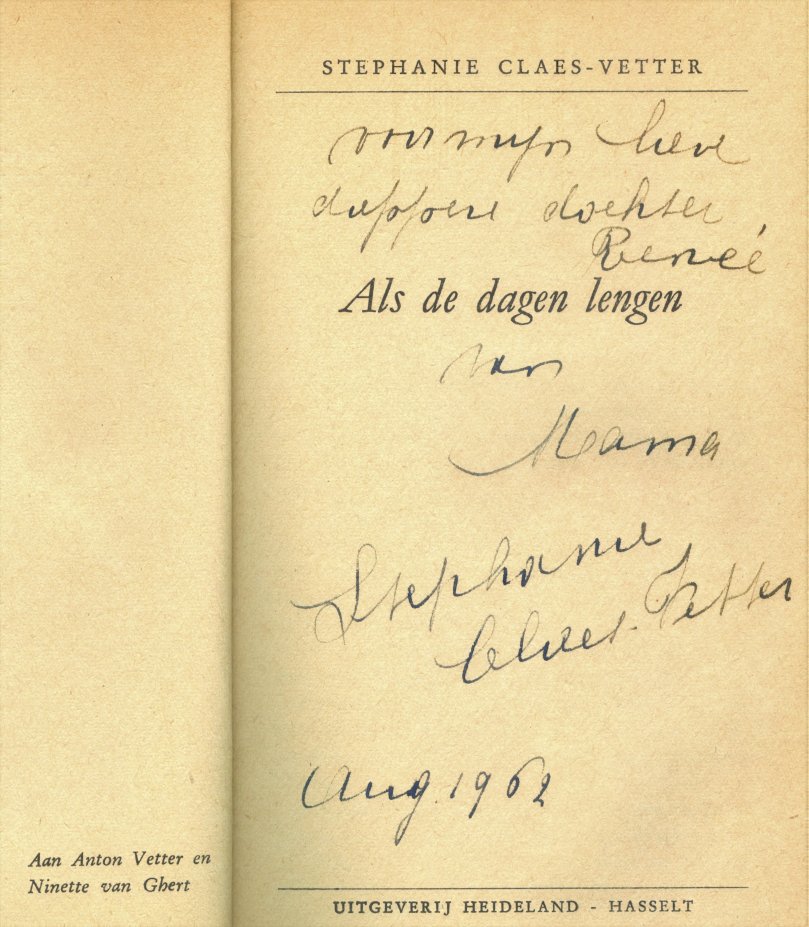 STEPHANIE CLAES-VETTER
voor mijn lieve
dappere dochter,
Renée
Als de dagen lengen
van
Mama
Stephanie
Claes-Vetter
Aug. 1962
UITGEVERIJ HEIDELAND - HASSELT
Aan Anton Vetter en
Ninette van Ghert